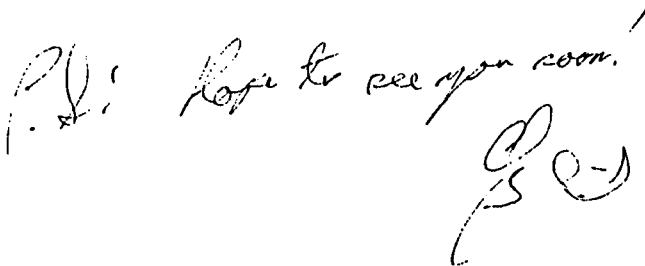 P.S.: Hope to see you soon!